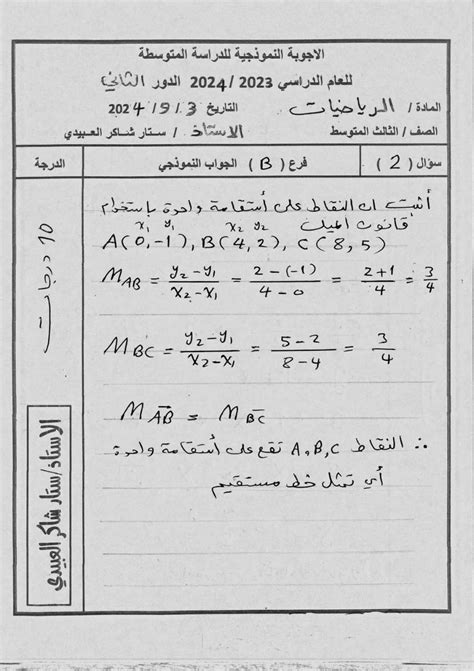 الاجوبة النموذجية للدراسة المتوسطة
للعام الدراسي 2023 / 2024 الدور الثاني
المادة / الرياضيات التاريخ 3 / 9 / 2024
الصف / الثالث المتوسط الاستاذ / ستار شاكر العبيدي
سؤال ( 2 ) فرع ( B ) الجواب النموذجي الدرجة
أثبت ان النقاط على أستقامة واحدة باستخدام
قانون الميل
x₁ y₁ x₂ y₂
A(0,-1), B(4,2), C(8,5)
M_AB = (y₂-y₁)/(x₂-x₁) = (2-(-1))/(4-0) = (2+1)/4 = 3/4
M_BC = (y₂-y₁)/(x₂-x₁) = (5-2)/(8-4) = 3/4
M_AB = M_BC
∴ النقاط A,B,C تقع على أستقامة واحدة
أي تمثل خط مستقيم
10 درجات
الاستاذ/ستار شاكر العبيدي